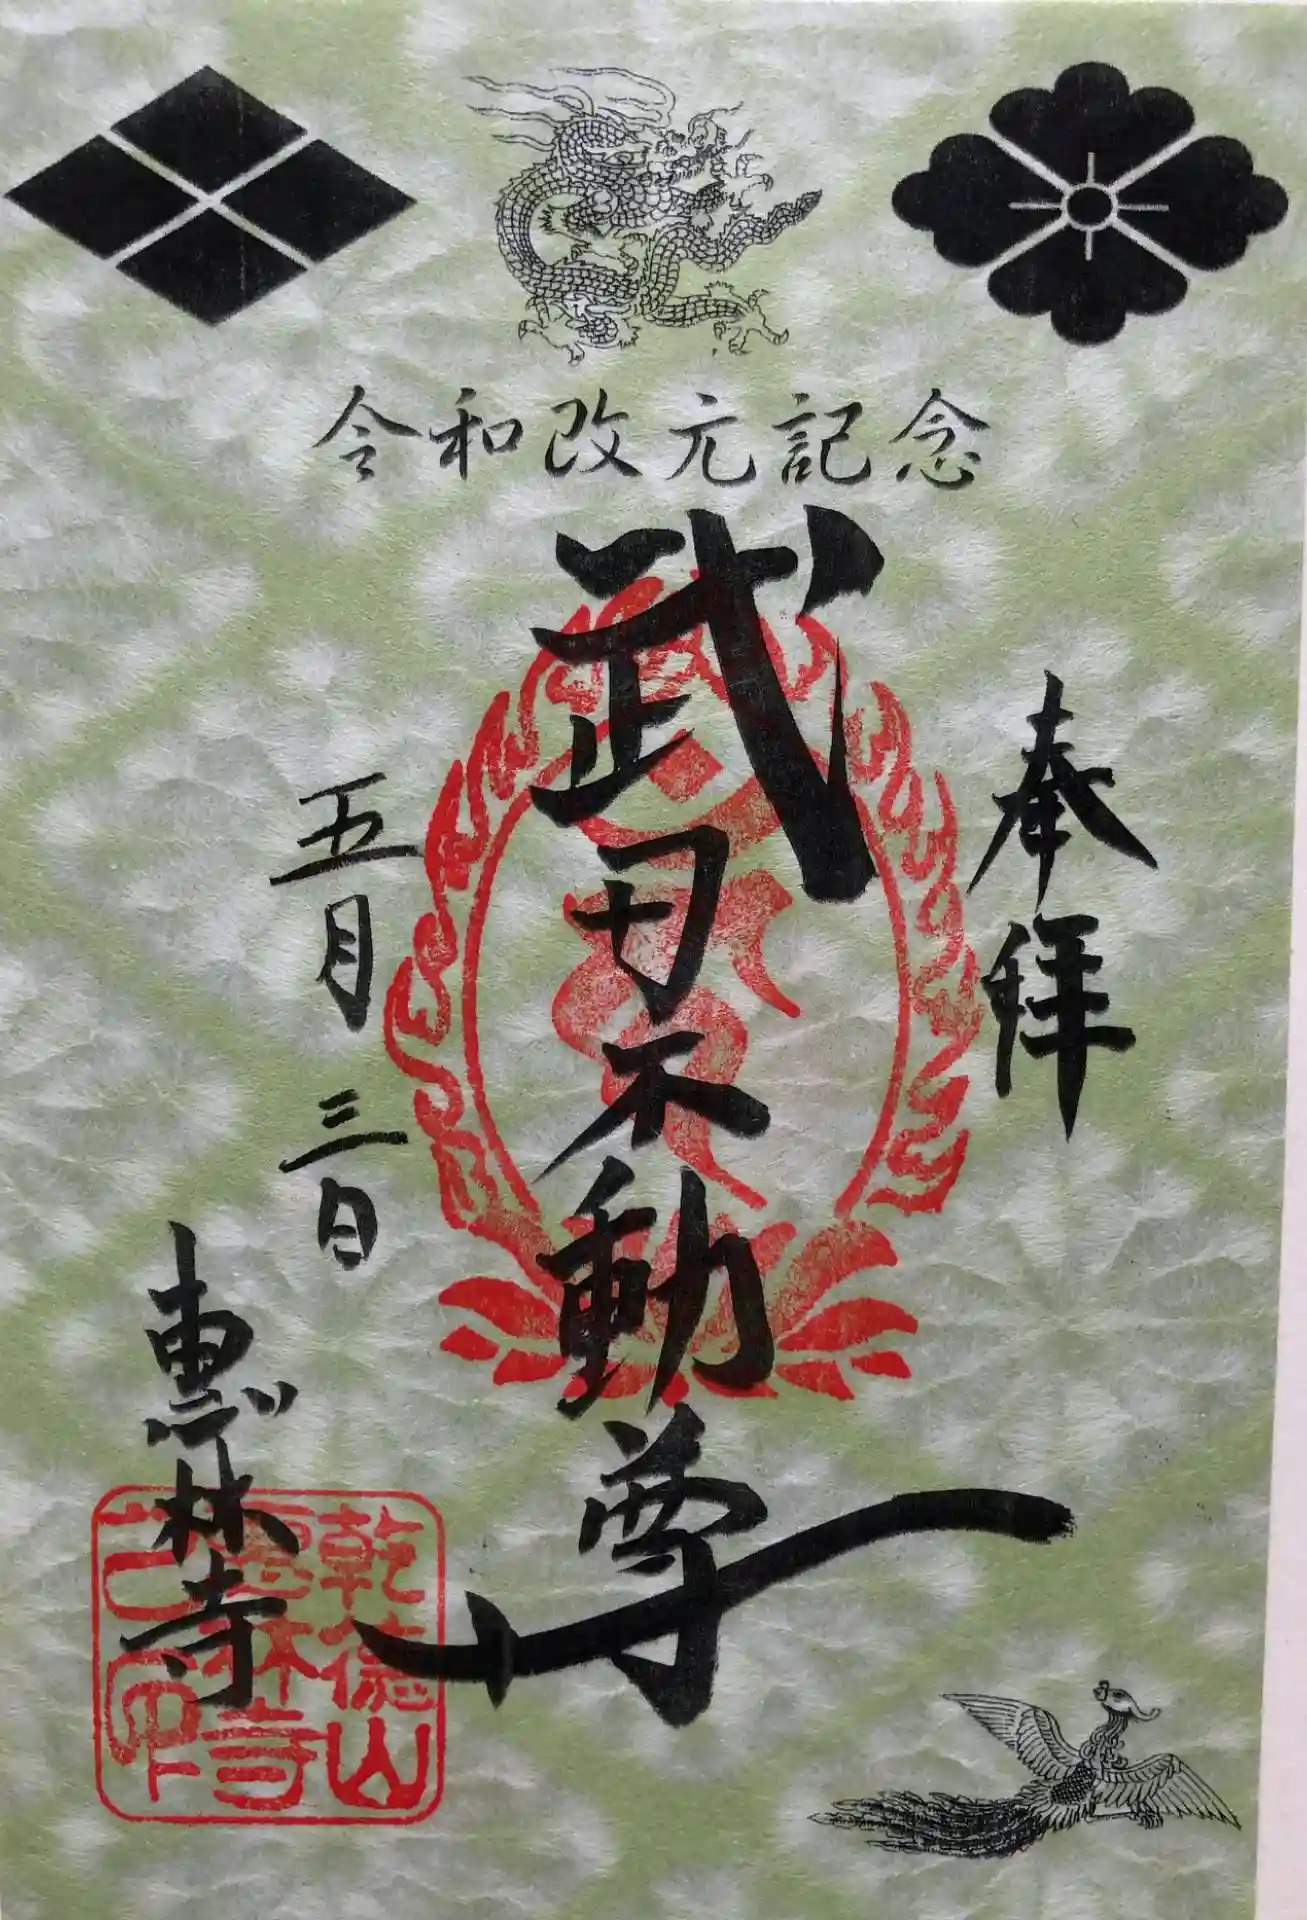 令和改元記念
奉拝
武田不動尊
五月三日
恵林寺
乾徳山
恵林寺